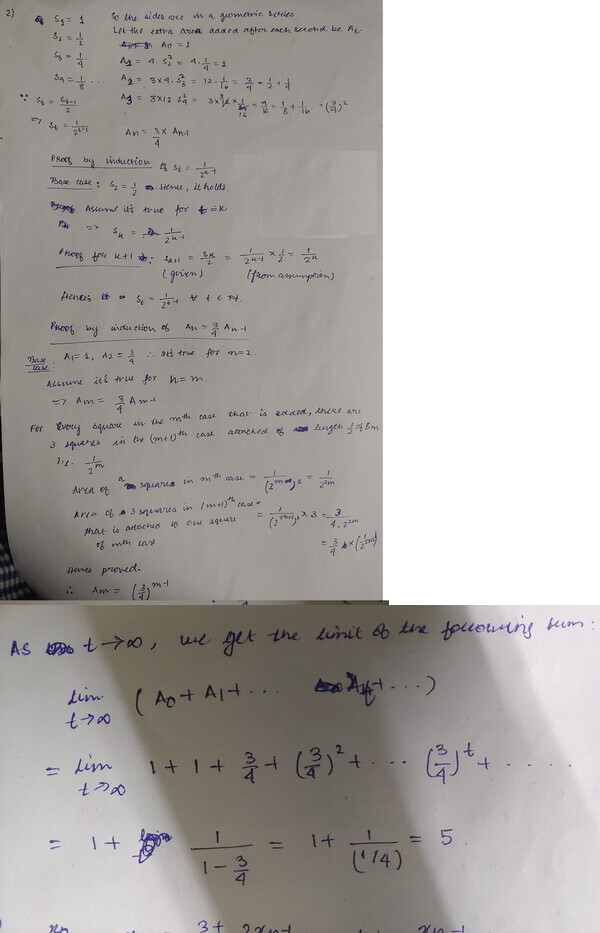 2) S₁ = 1 So the sides are in a geometric series.
S₂ = 1/2 Let the extra area added after each second be Aₜ
S₃ = 1/4 A₀ = 1
A₁ = 4 · S₂² = 4 · 1/4 = 1
S₄ = 1/8 .... A₂ = 3×4 · S₃² = 12 · 1/16 = 3/4 = 1/2 + 1/4
∵ Sₜ = Sₜ₋₁/2 A₃ = 3×12 S₄² = = 9/16 = 1/2 + 1/16 = (3/4)²
⇒ Sₜ = 1/2ᵗ⁻¹
Aₙ = 3/4 × Aₙ₋₁
Proof by induction of Sₜ = 1/2ᵗ⁻¹
Base case: S₂ = 1/2 Hence, it holds.
Assume it's true for t = k
⇒ Sₖ = 1/2ᵏ⁻¹
Proof for k+1 : Sₖ₊₁ = Sₖ/2 = 1/2ᵏ⁻¹ × 1/2 = 1/2ᵏ
(given) (from assumption)
Hence Sₜ = 1/2ᵗ⁻¹ ∀ t ∈ N.
Proof by induction of Aₙ = 3/4 Aₙ₋₁
Base case: A₁ = 1, A₂ = 3/4 ∴ it's true for n = 2.
Assume it's true for n = m.
⇒ Aₘ = 3/4 Aₘ₋₁
For every square in the mth case that is added, there are
3 squares in the (m+1)ᵗʰ case attached of length 1/2 of Sₘ
i.e. 1/2ᵐ
Area of a square in mᵗʰ case = = 1/2²ᵐ
Area of 3 squares in (m+1)ᵗʰ case = 1/(2ᵐ⁺¹)² × 3 = 3/4·2²ᵐ
that is attached to one square
of mth case = 3/4 ×
Hence proved.
∴ Aₘ = (3/4)ᵐ⁻¹
As t → ∞, we get the limit of the following sum:
lim t→∞ (A₀ + A₁ + ... Aₜ + ...)
= lim t→∞ 1 + 1 + 3/4 + (3/4)² + ... (3/4)ᵗ + .....
= 1 + 1/(1 − 3/4) = 1 + 1/(1/4) = 5